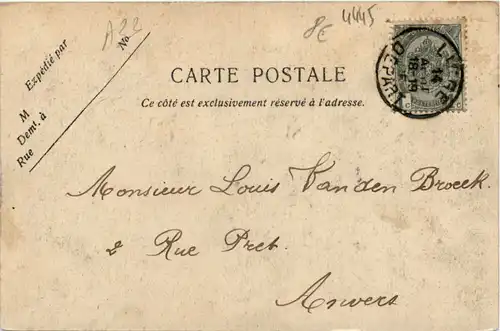 A22
8€ 4445
Expédié par
M
Demt. à
Rue
No
CARTE POSTALE
Ce côté est exclusivement réservé à l'adresse.
DEPART
14
18-19
Monsieur Louis Van den Broeck.
2 Rue Pret.
Anvers